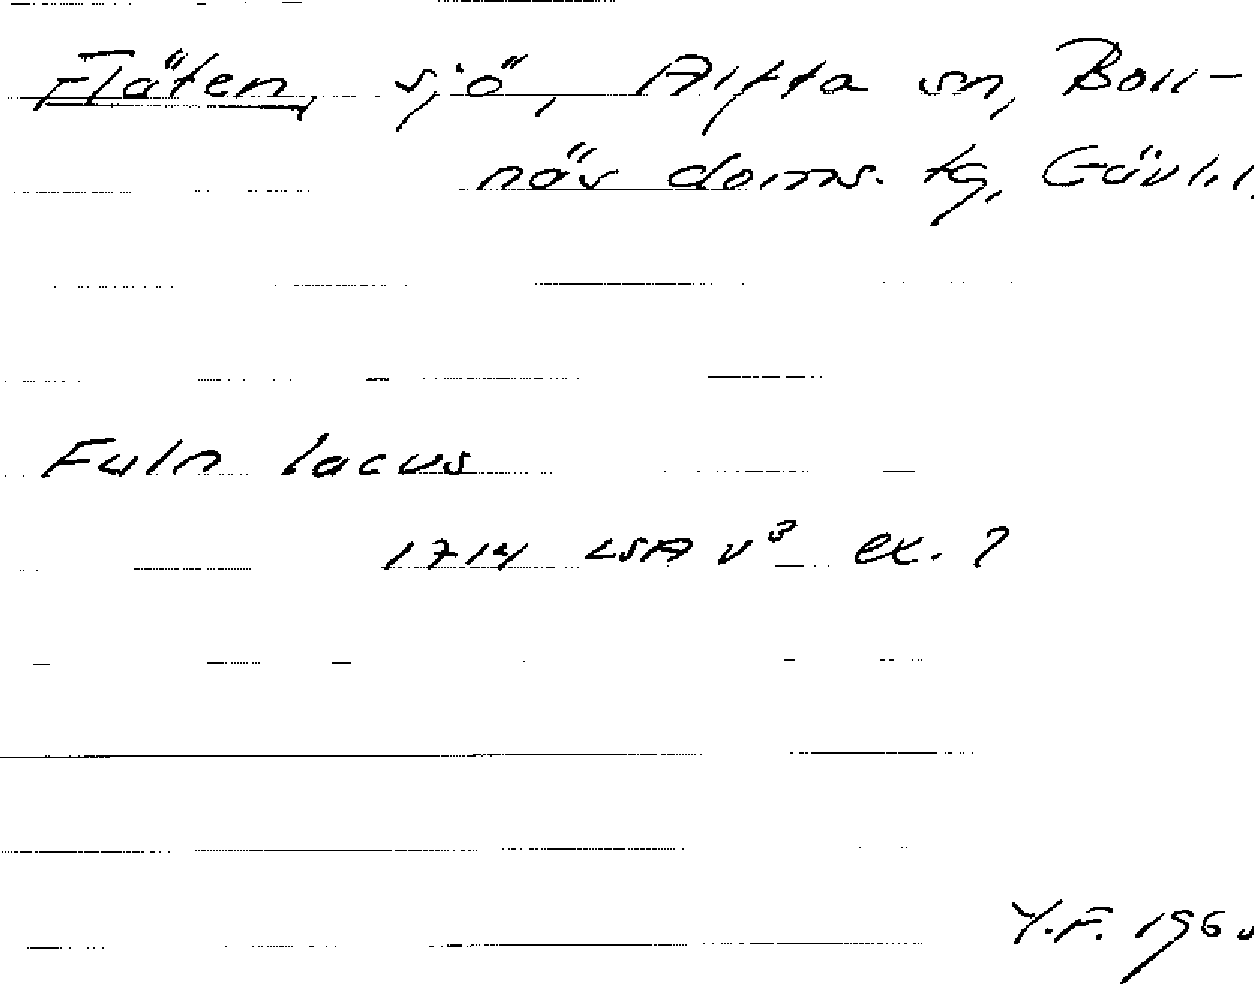 Fläten, sjö, Alfta sn, Boll-
näs doms. tg, Gävl. l.
Fuln lacus
1714 LSA v³ ex. ?
Y.F. 196